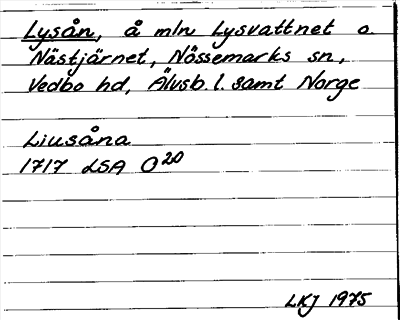 Lysån, å mln Lysvattnet o.
Nästjärnet, Nössemarks sn,
Vedbo hd, Älvsb. l. samt Norge
Liusåna
1717 LSA O20
LKJ 1975